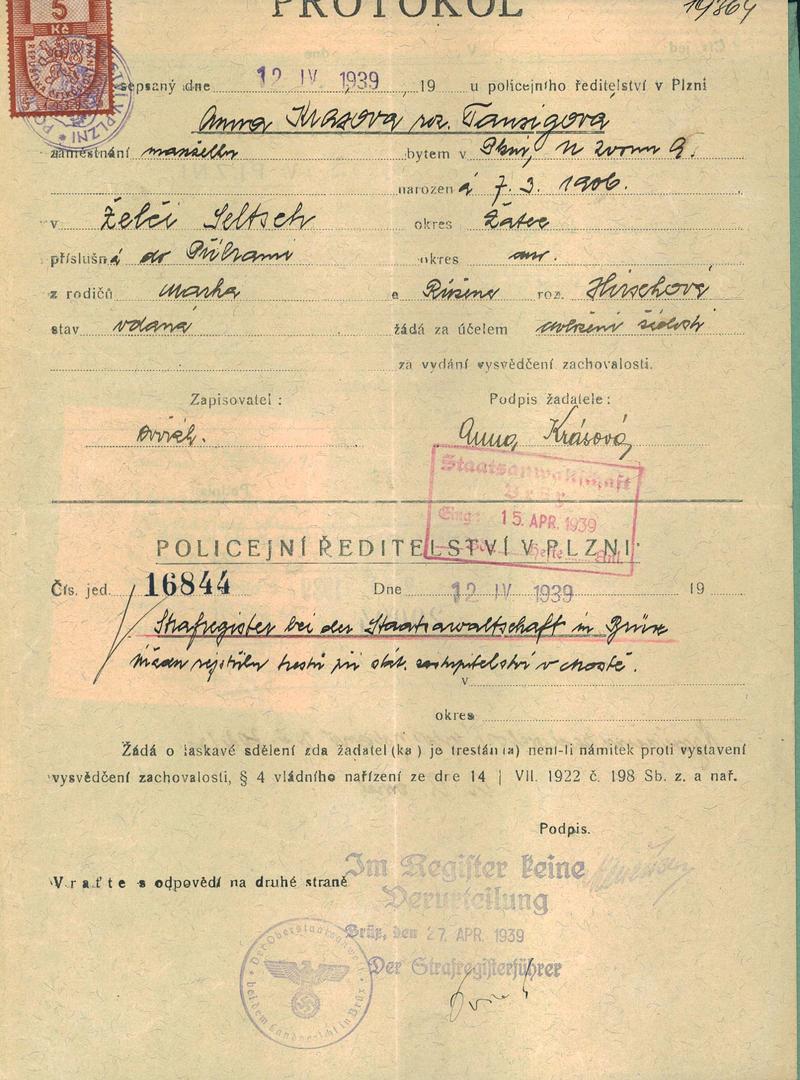 PROTOKOL
5
Kč
sepsaný dne 12 IV. 1939 19 u policejního ředitelství v Plzni
Anna Krásová roz. Taussigová
zaměstnání manželka bytem v Plzni, U zvonu 9.
narozená 7. 3. 1906.
v Želči Seltsch okres Žatec
příslušná do Příbrami okres
z rodičů Marka a Růžena roz. Hirschové
stav vdaná žádá za účelem žádosti
za vydání vysvědčení zachovalosti.
Zapisovatel: Podpis žadatele:
Anna Krásová
Staatsanwaltschaft
Brüx
Eing: 15. APR. 1939
POLICEJNÍ ŘEDITELSTVÍ V PLZNI
Čís. jed. 16844 Dne 12 IV 1939 19
Strafregister bei der Staatsanwaltschaft in Brüx
v Mostě.
v
okres
Žádá o laskavé sdělení zda žadatel (ka) je trestán (a) není-li námitek proti vystavení
vysvědčení zachovalosti, § 4 vládního nařízení ze dne 14 | VII. 1922 č. 198 Sb. z. a nař.
Podpis.
Vraťte s odpovědí na druhé straně
Im Register keine
Verurteilung
Brüx, den 27. APR. 1939
Der Strafregisterführer
Der Oberstaatsanwalt
bei dem Landgericht in Brüx